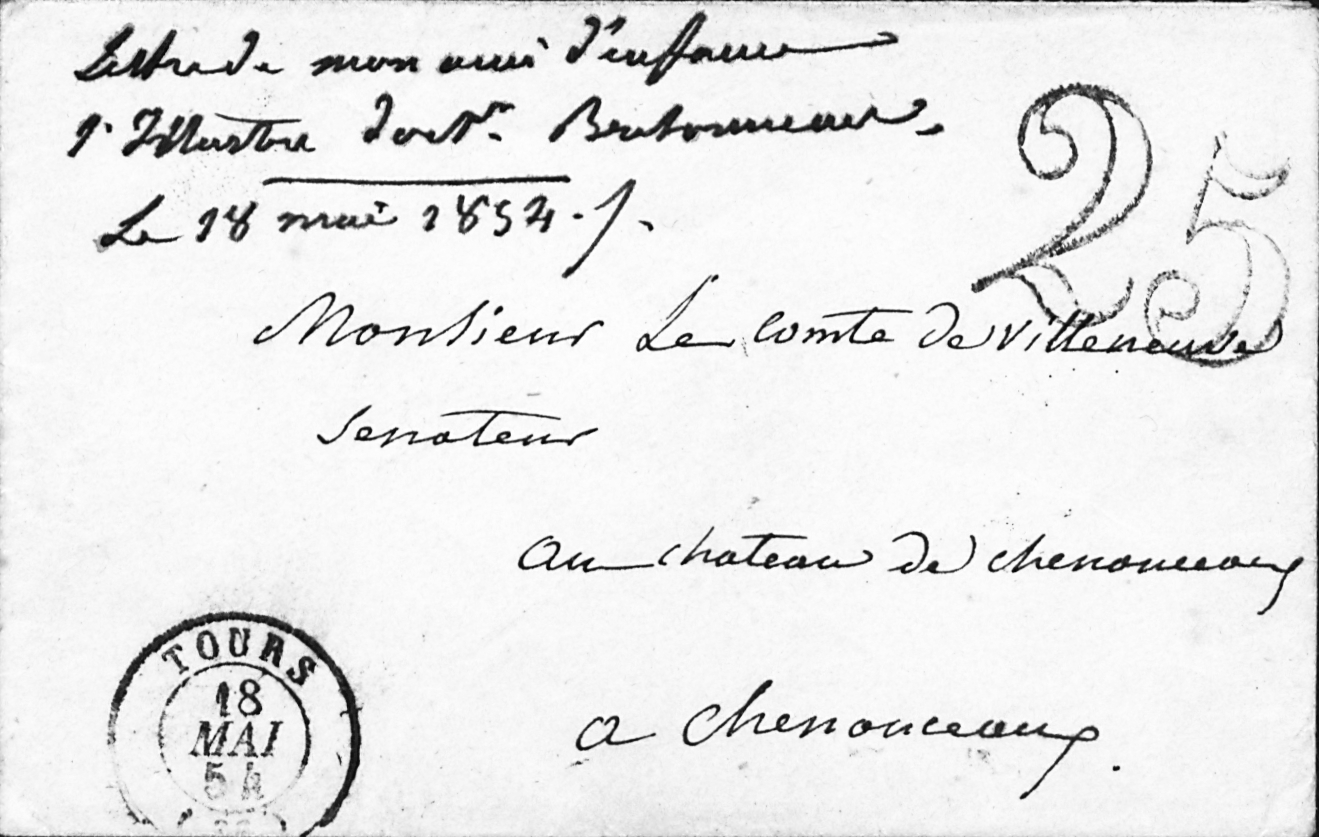 Lettre de mon ami d'enfance
l'Illustre doctr. Bretonneau.
Le 18 mai 1854./.
25
Monsieur Le comte de Villeneuve
Senateur
au chateau de chenonceaux
a chenonceaux.
TOURS
18
MAI
54